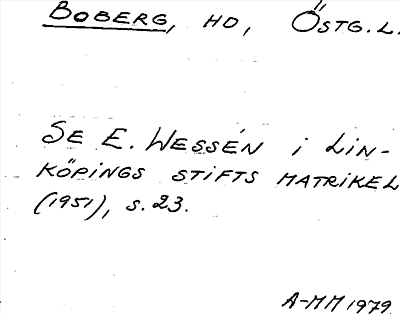 BOBERG, HD, ÖSTG.L.
SE E. WESSÉN i LIN-
KÖPINGS STIFTS MATRIKEL
(1951), s. 23.
A-MM 1979